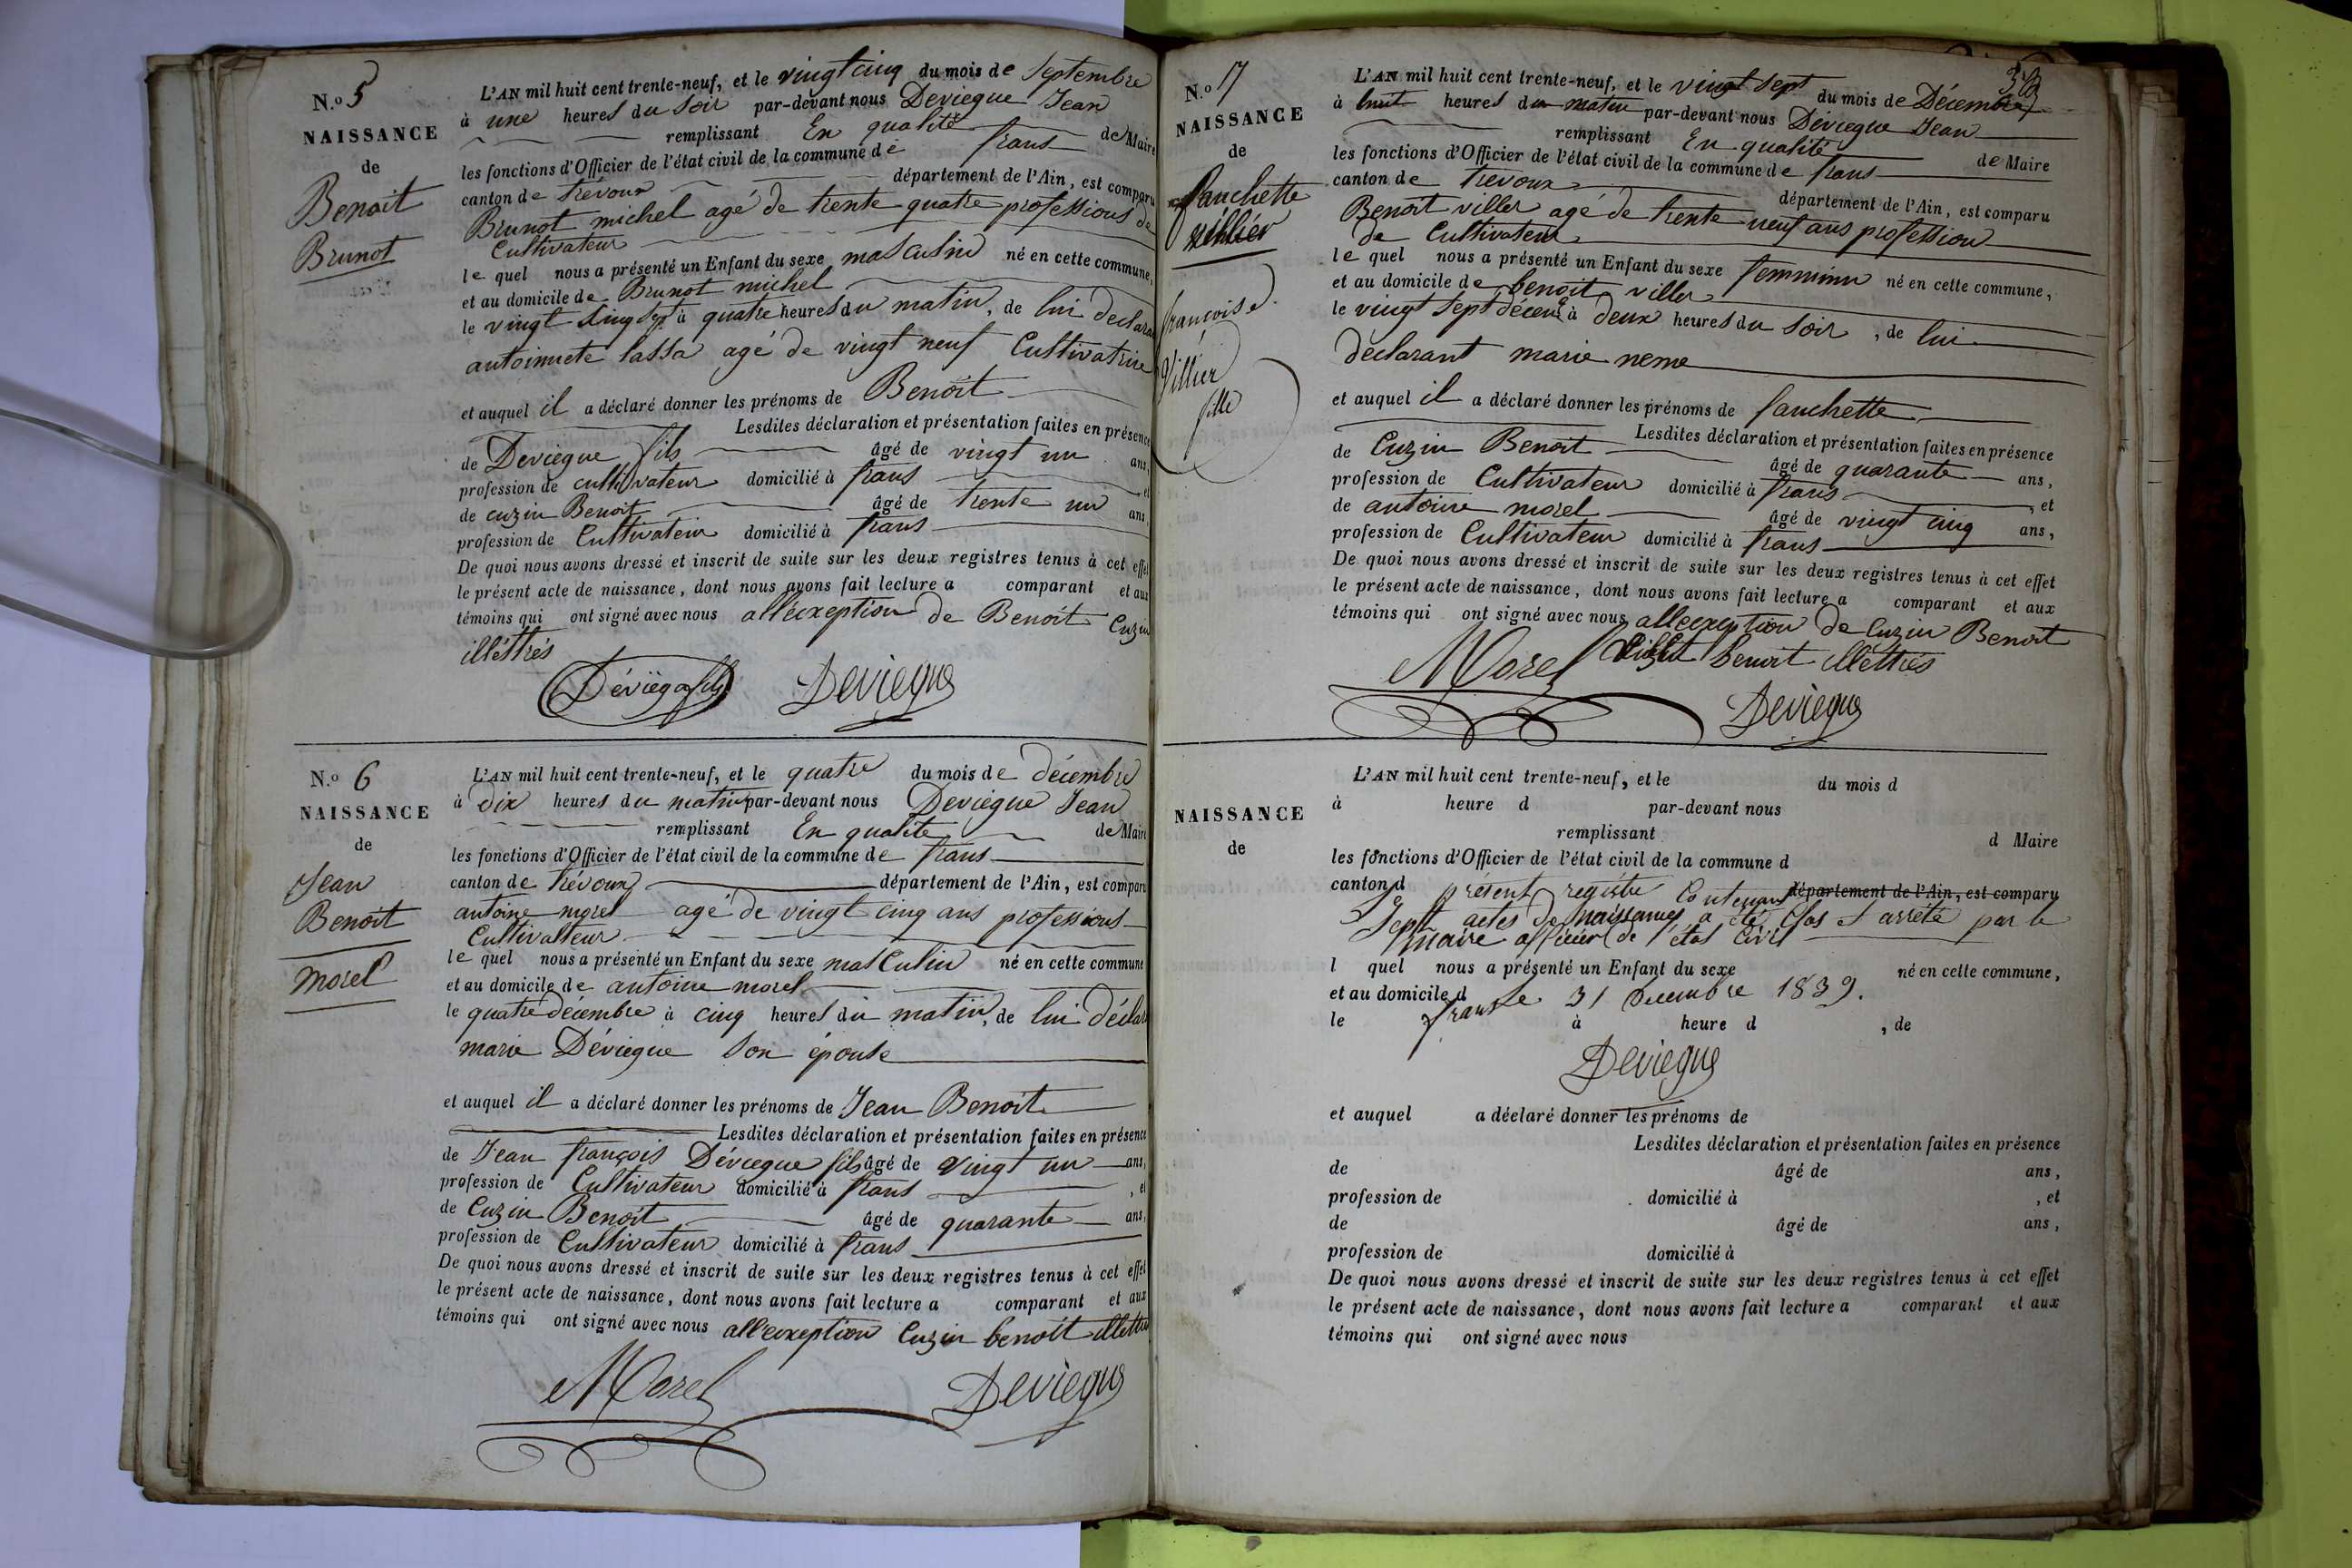 N.o 5
NAISSANCE
de
Benoit
Brunot
L'AN mil huit cent trente-neuf, et le vingt cinq du mois de Septembre
à une heures du Soir par-devant nous Deviegue Jean
remplissant En qualité de Maire
les fonctions d'Officier de l'état civil de la commune de frans
canton de trévoux département de l'Ain, est comparu
Brunot michel agé de trente quatre professions de
Cultivateur
le quel nous a présenté un Enfant du sexe masculin né en cette commune,
et au domicile de Brunot michel
le vingt cinq Sep à quatre heures du matin, de lui declara
antoinnete lassa agé de vingt neuf Cultivatrice
et auquel il a déclaré donner les prénoms de Benoit
Lesdites déclaration et présentation faites en présence
de Deviegue fils âgé de vingt un ans,
profession de cultivateur domicilié à frans et
de cuzin Benoit âgé de trente un ans,
profession de Cultivateur domicilié à frans
De quoi nous avons dressé et inscrit de suite sur les deux registres tenus à cet effet
le présent acte de naissance, dont nous avons fait lecture a comparant et aux
témoins qui ont signé avec nous alléxception de Benoit Cuzin
illéttrés
Déviégue fils Deviegue
N.o 6
NAISSANCE
de
Jean
Benoit
morel
L'AN mil huit cent trente-neuf, et le quatre du mois de décembre
à dix heures du matin par-devant nous Deviegue Jean
remplissant En qualite de Maire
les fonctions d'Officier de l'état civil de la commune de frans
canton de trévoux département de l'Ain, est comparu
antoine morel agé de vingt cinq ans professions
Cultivatteur
le quel nous a présenté un Enfant du sexe masculin né en cette commune
et au domicile de antoine morel
le quatre décembre à cinq heures du matin, de lui déclar
marie Déviegue Son épouse
et auquel il a déclaré donner les prénoms de Jean Benoit
Lesdites déclaration et présentation faites en présence
de Jean françois Déviegue fils âgé de vingt un ans,
profession de Cultivateur domicilié à frans , et
de Cuzin Benoit âgé de quarante ans,
profession de Cultivateur domicilié à frans
De quoi nous avons dressé et inscrit de suite sur les deux registres tenus à cet effet
le présent acte de naissance, dont nous avons fait lecture a comparant et aux
témoins qui ont signé avec nous all'exception Cuzin benoit illettré
Morel Deviegue
N.o 7
NAISSANCE
de
fanchette
villier
françoise
Villier
fille
L'AN mil huit cent trente-neuf, et le vingt sept du mois de Décembre
à huit heures du matin par-devant nous Déviegue Jean
remplissant En qualité de Maire
les fonctions d'Officier de l'état civil de la commune de frans
canton de trevoux département de l'Ain, est comparu
Benoit viller agé de trente neuf ans profession
de Cultivateur
le quel nous a présenté un Enfant du sexe femminin né en cette commune,
et au domicile de benoit viller
le vingt Sept décem à deux heures du soir, de lui
declarant marie neme
et auquel il a déclaré donner les prénoms de fanchette
Lesdites déclaration et présentation faites en présence
de Cuzin Benoit âgé de quarante ans,
profession de Cultivateur domicilié à frans , et
de antoine morel âgé de vingt cinq ans,
profession de Cultivateur domicilié à frans
De quoi nous avons dressé et inscrit de suite sur les deux registres tenus à cet effet
le présent acte de naissance, dont nous avons fait lecture a comparant et aux
témoins qui ont signé avec nous allexception de Cuzin Benoit
benoit illettrés
Morel Deviegue
NAISSANCE
de
L'AN mil huit cent trente-neuf, et le du mois d
à heure d par-devant nous
remplissant d Maire
les fonctions d'Officier de l'état civil de la commune d
canton d département de l'Ain, est comparu
présent registre Contenant
Sept actes de naissances a été Clos et arrêté par le
maire officier de l'état Civil
l quel nous a présenté un Enfant du sexe né en cette commune,
et au domicile d
frans Le 31 Decembre 1839.
le à heure d , de
Deviegue
et auquel a déclaré donner les prénoms de
Lesdites déclaration et présentation faites en présence
de âgé de ans,
profession de domicilié à , et
de âgé de ans,
profession de domicilié à
De quoi nous avons dressé et inscrit de suite sur les deux registres tenus à cet effet
le présent acte de naissance, dont nous avons fait lecture a comparant et aux
témoins qui ont signé avec nous